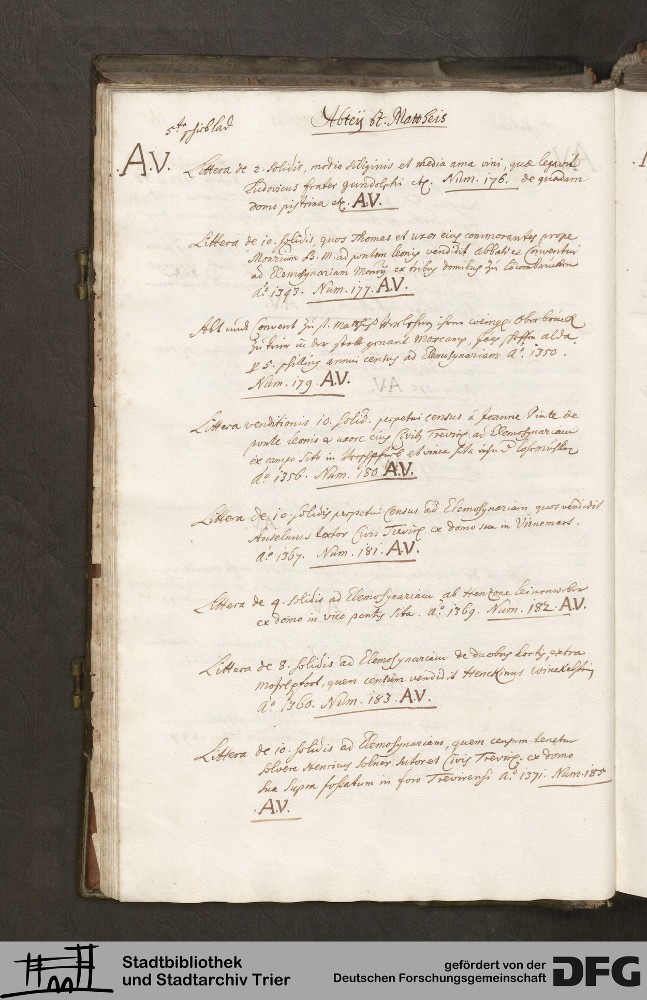 5te schublad
Abteÿ St. Mattheis
A.V.
Littera de 2. solidis, modio siliginis et media ama vini, quæ legavit
Ludovicus frater gundolphi etc. Num. 176. de quadam
domo pistrina etc. A.V.
Littera de 10. solidis, quos Thomas et uxor eius commorantes prope
Monrium B. M. ad pontem leonis vendidit abbati et Conventui
ad Elemosÿnariam Monrÿ ex tribus domibus zu
aº. 1343. Num. 177. A.V.
Abt unnd Convent zu st. Mattheiß
zu trier in der
5. schilling annui census ad Elemosÿnariam aº. 1350.
Num. 179. A.V.
Littera venditionis 10. solid. perpetui census a Joanne de
ponte leonis et uxore eius Civib. Treviris, ad Elemosÿnariam
ex campo sito in et vinea sita
aº. 1356. Num. 180 A.V.
Littera de 10. solidis perpetui Census ad Elemosÿnariam quos vendidit
Anselmus textor Civis Treviris ex domo sua in
aº. 1367. Num. 181. A.V.
Littera de 4. solidis ad Elemosÿnariam ab Henzone leinenweber
ex domo in vico pontis sita. aº. 1369. Num. 182. A.V.
Littera de 8. solidis ad Elemosÿnariam de duobus hortis extra
Moselpfort, quem censum vendidit Henckinus
aº. 1360. Num. 183. A.V.
Littera de 10. solidis ad Elemosÿnariam, quem censum tenetur
solvere Henricus sutor et Civis Treviris ex domo
sua supra fossatum in foro Trevirensi aº. 1371. Num. 185
A.V.
Stadtbibliothek
und Stadtarchiv Trier
gefördert von der
Deutschen Forschungsgemeinschaft
DFG